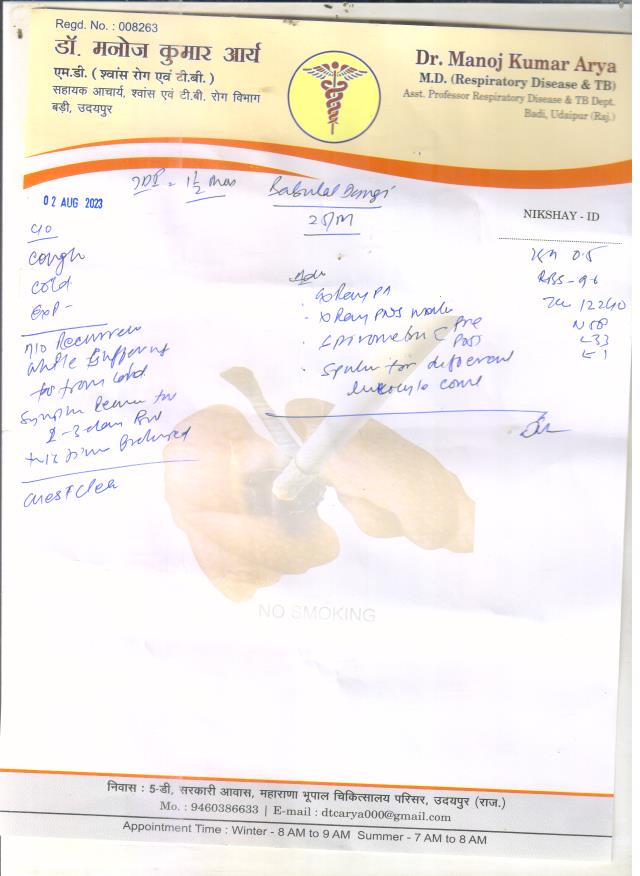 Regd. No. : 008263
डॉ. मनोज कुमार आर्य
एम.डी. ( श्वांस रोग एवं टी.बी. )
सहायक आचार्य, श्वांस एवं टी.बी. रोग विभाग
बड़ी, उदयपुर
Dr. Manoj Kumar Arya
M.D. (Respiratory Disease & TB)
Asst. Professor Respiratory Disease & TB Dept.
Badi, Udaipur (Raj.)
02 AUG 2023
1½
Babulal
25/M
NIKSHAY - ID
c/o
cough
cold
Exp -
H/o Recurren
while suffering
from cold
2-3 days
this time
chest clear
Adv
X Ray PA
X Ray PNS
Spirometry c Pre
Post
Sputum for differen
0.5
RBS - 96
12240
N 58
L 33
E 1
NO SMOKING
निवास : 5-डी, सरकारी आवास, महाराणा भूपाल चिकित्सालय परिसर, उदयपुर (राज.)
Mo. : 9460386633 | E-mail : dtcarya000@gmail.com
Appointment Time : Winter - 8 AM to 9 AM Summer - 7 AM to 8 AM